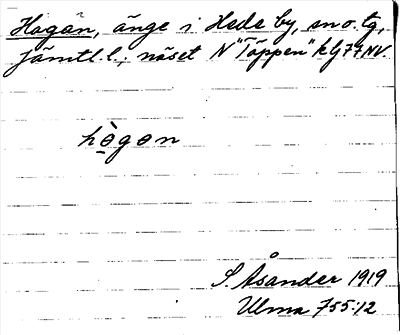 Hagån, änge i Hede by, sn o. tg,
Jämtl. l.; näset N "Täppen" klj 77 NV.
hògon
S. Åsander 1919
Ulma 755:12